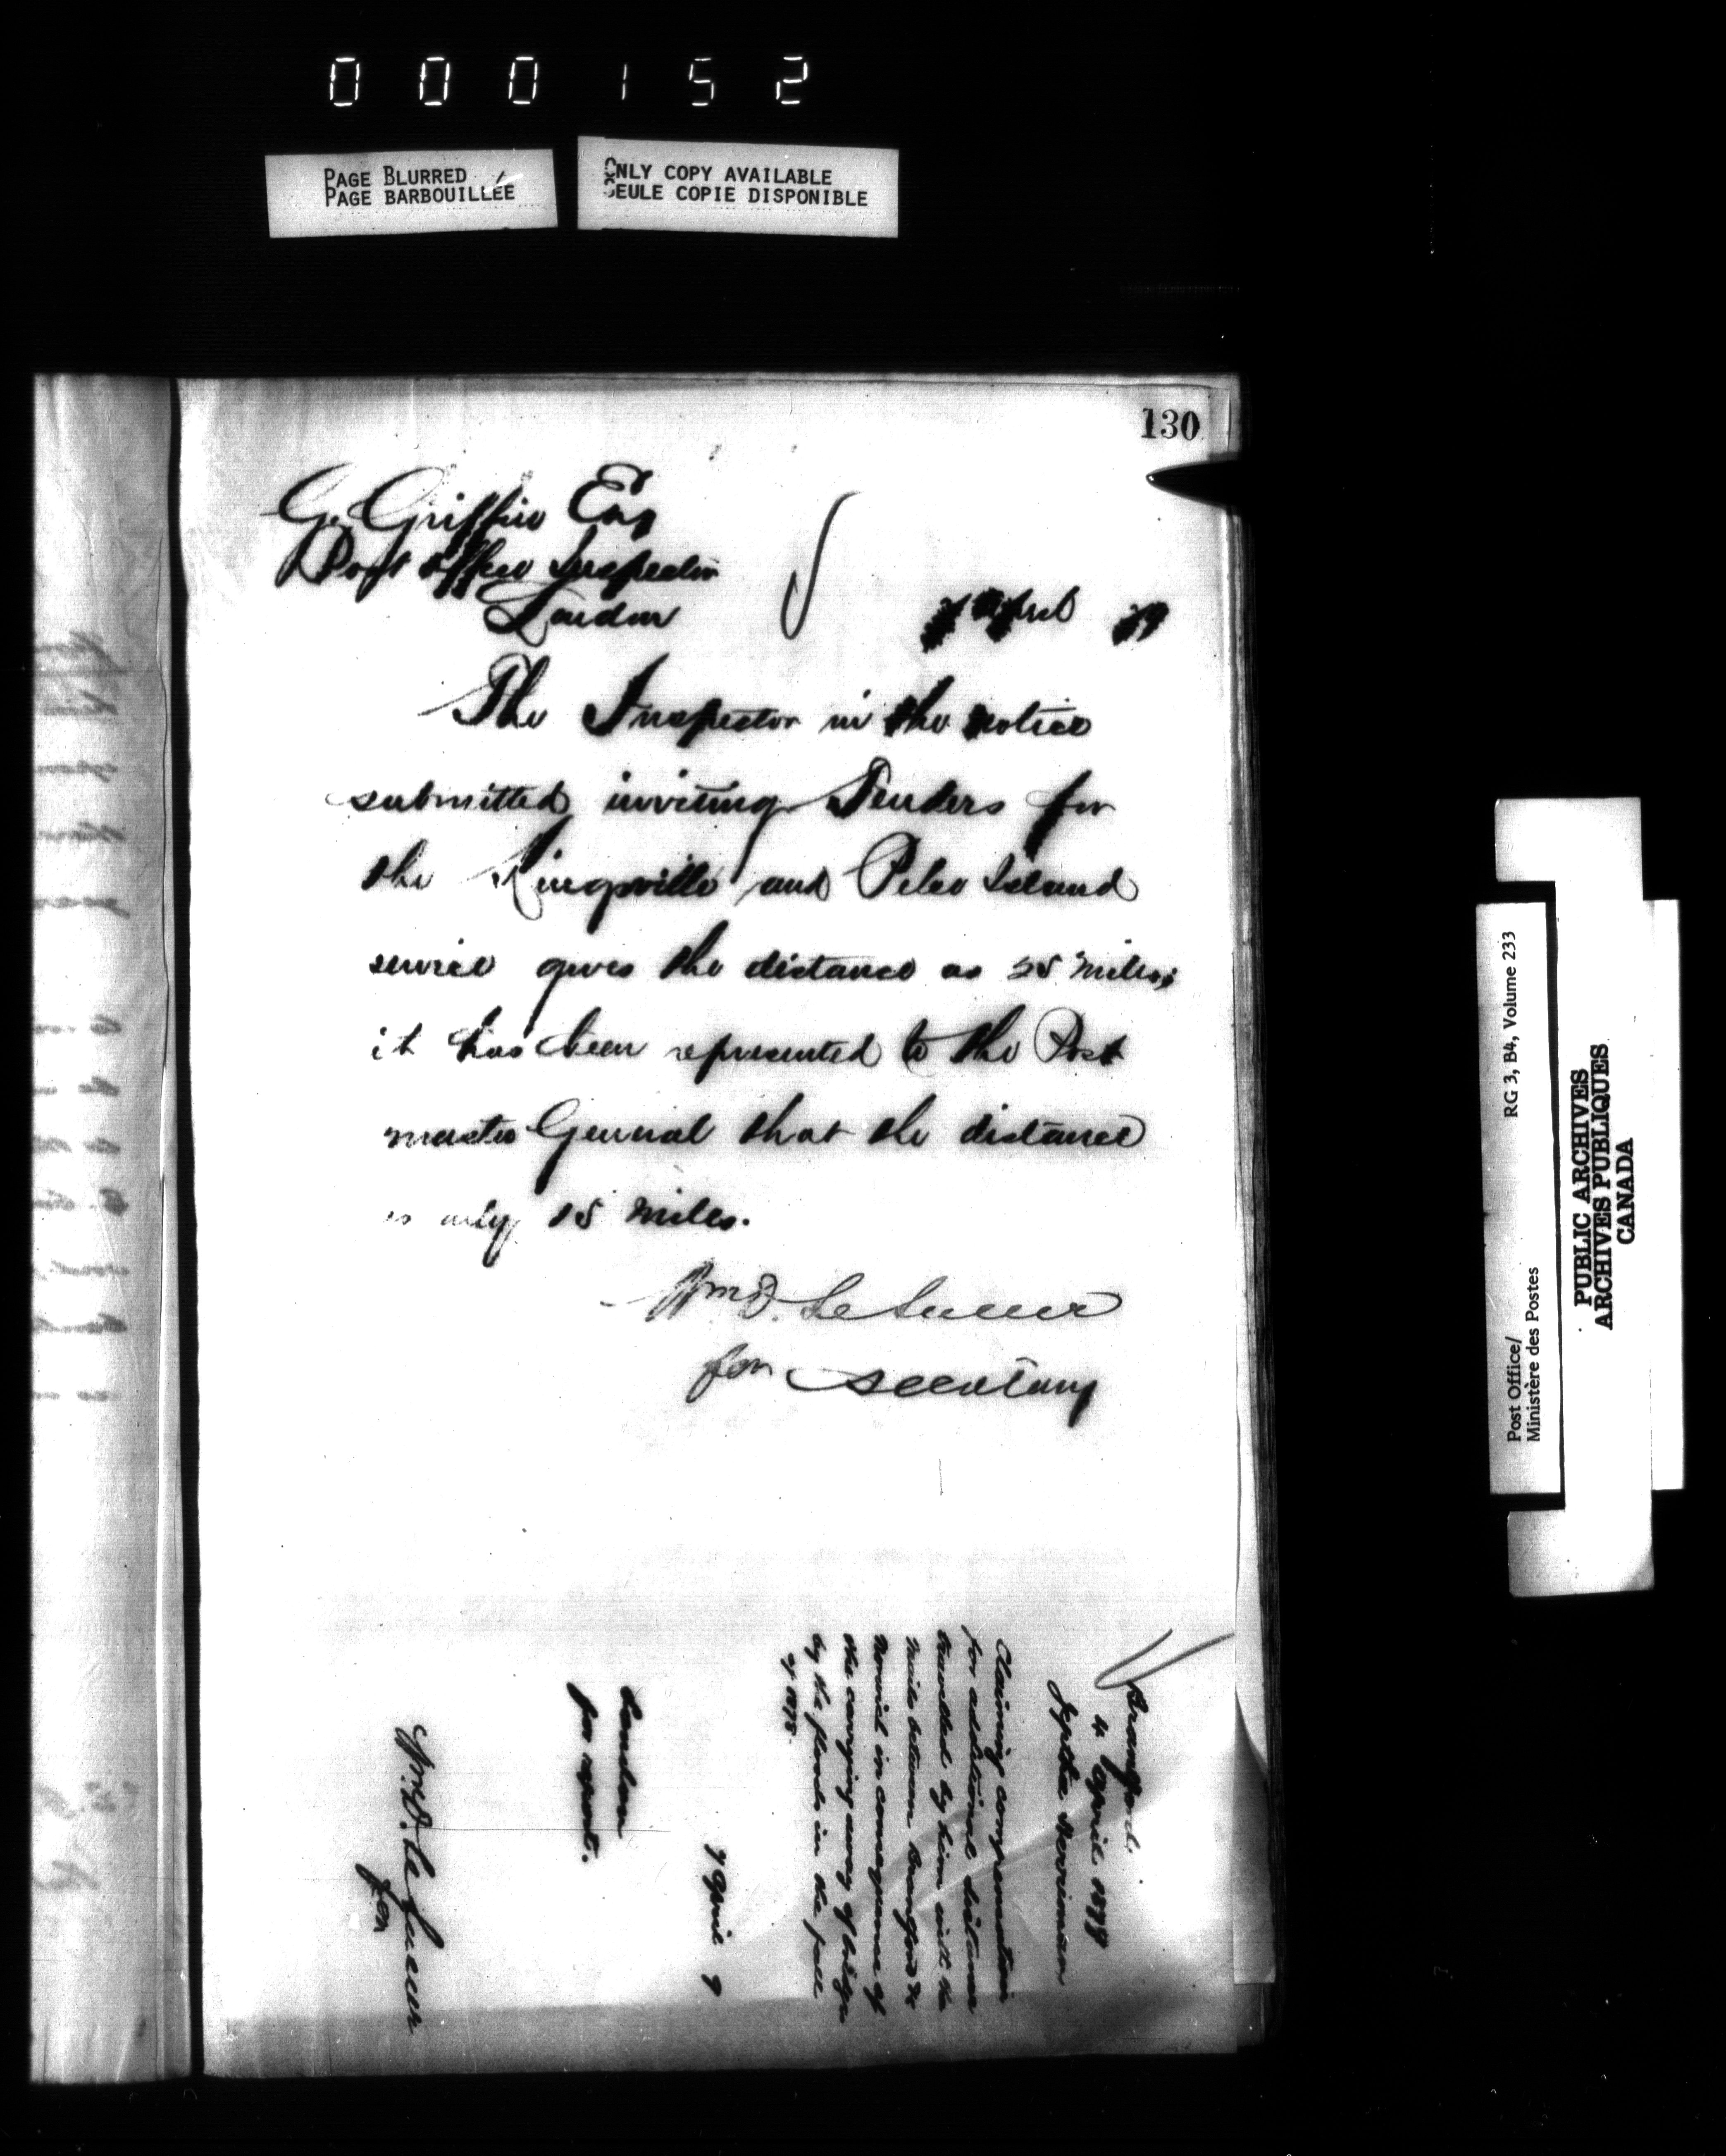 000152
PAGE BLURRED
PAGE BARBOUILLÉE
ONLY COPY AVAILABLE
SEULE COPIE DISPONIBLE
130
G. Griffin Esq
Post Office Inspector
London
7 April 79
The Inspector in the notice
submitted inviting Tenders for
the Kingsville and Pelee Island
service gives the distance as 25 miles;
it has been represented to the Post
master General that the distance
is only 15 miles.
Wm D. LeSueur
for Secretary
Brantford.
4 April 1879
Jeptha Merriman
Claiming compensation
for additional distance
travelled by him with the
mails between Brantford &
Norwich in consequence of
the carrying away of bridges
by the floods in the fall
of 1878.
7 April 9
London
for report.
Wm D. LeSueur
for
Post Office/
Ministère des Postes
RG 3, B4, Volume 233
PUBLIC ARCHIVES
ARCHIVES PUBLIQUES
CANADA